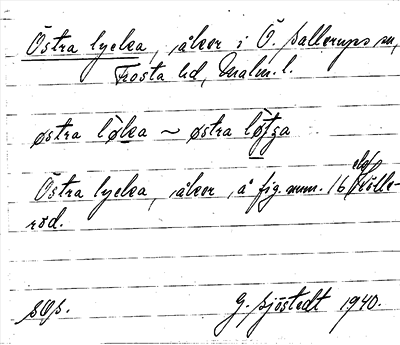 Östra lycka, åker i Ö. Sallerups sn,
Frosta hd, Malm. l.
østra løka ~ østra løtga
Östra lycka, åker, å fig. num. 16
röd.
SOs.
G. Sjöstedt 1940.